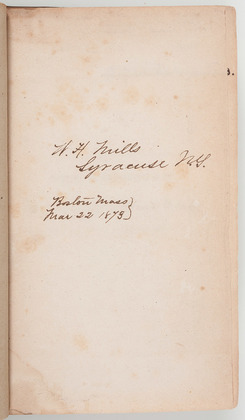 W. H. Mills
Syracuse N.Y.
Boston Mass
Mar 22 1873